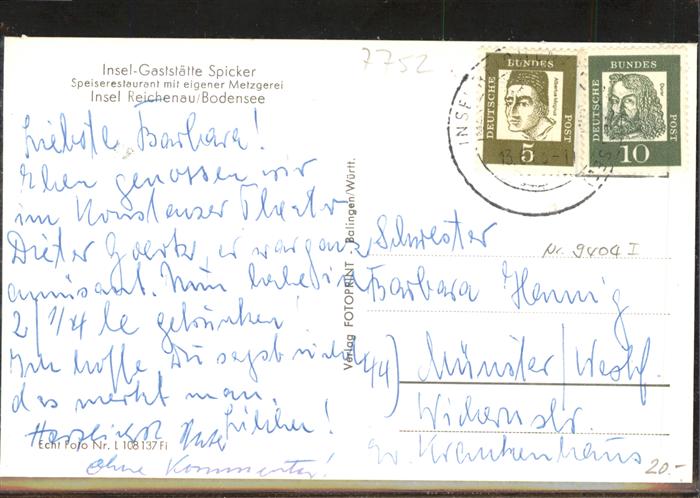 7752
Insel-Gaststätte Spicker
Speiserestaurant mit eigener Metzgerei
Insel Reichenau/Bodensee
Liebste Barbara!
Eben genossen wir
im Konstanzer Theater
Dieter Goertz, er war ganz
amüsant. Nun habe ich
2/ 1/4 le getrunken!
Ich hoffe Du sagst nicht
das merkt man.
Herzlichst
Echt Foto Nr. L 108137 Fi
Ohne Kommentar!
Verlag FOTOPRINT Balingen/Württ.
DEUTSCHE BUNDES POST
Albertus Magnus
5
DEUTSCHE BUNDES POST
Dürer
10
INSEL
13.
Nr. 9404 I
Schwester
Barbara Hennig
44) Münster/Westf.
Wichernstr.
Ev. Krankenhaus
20.-